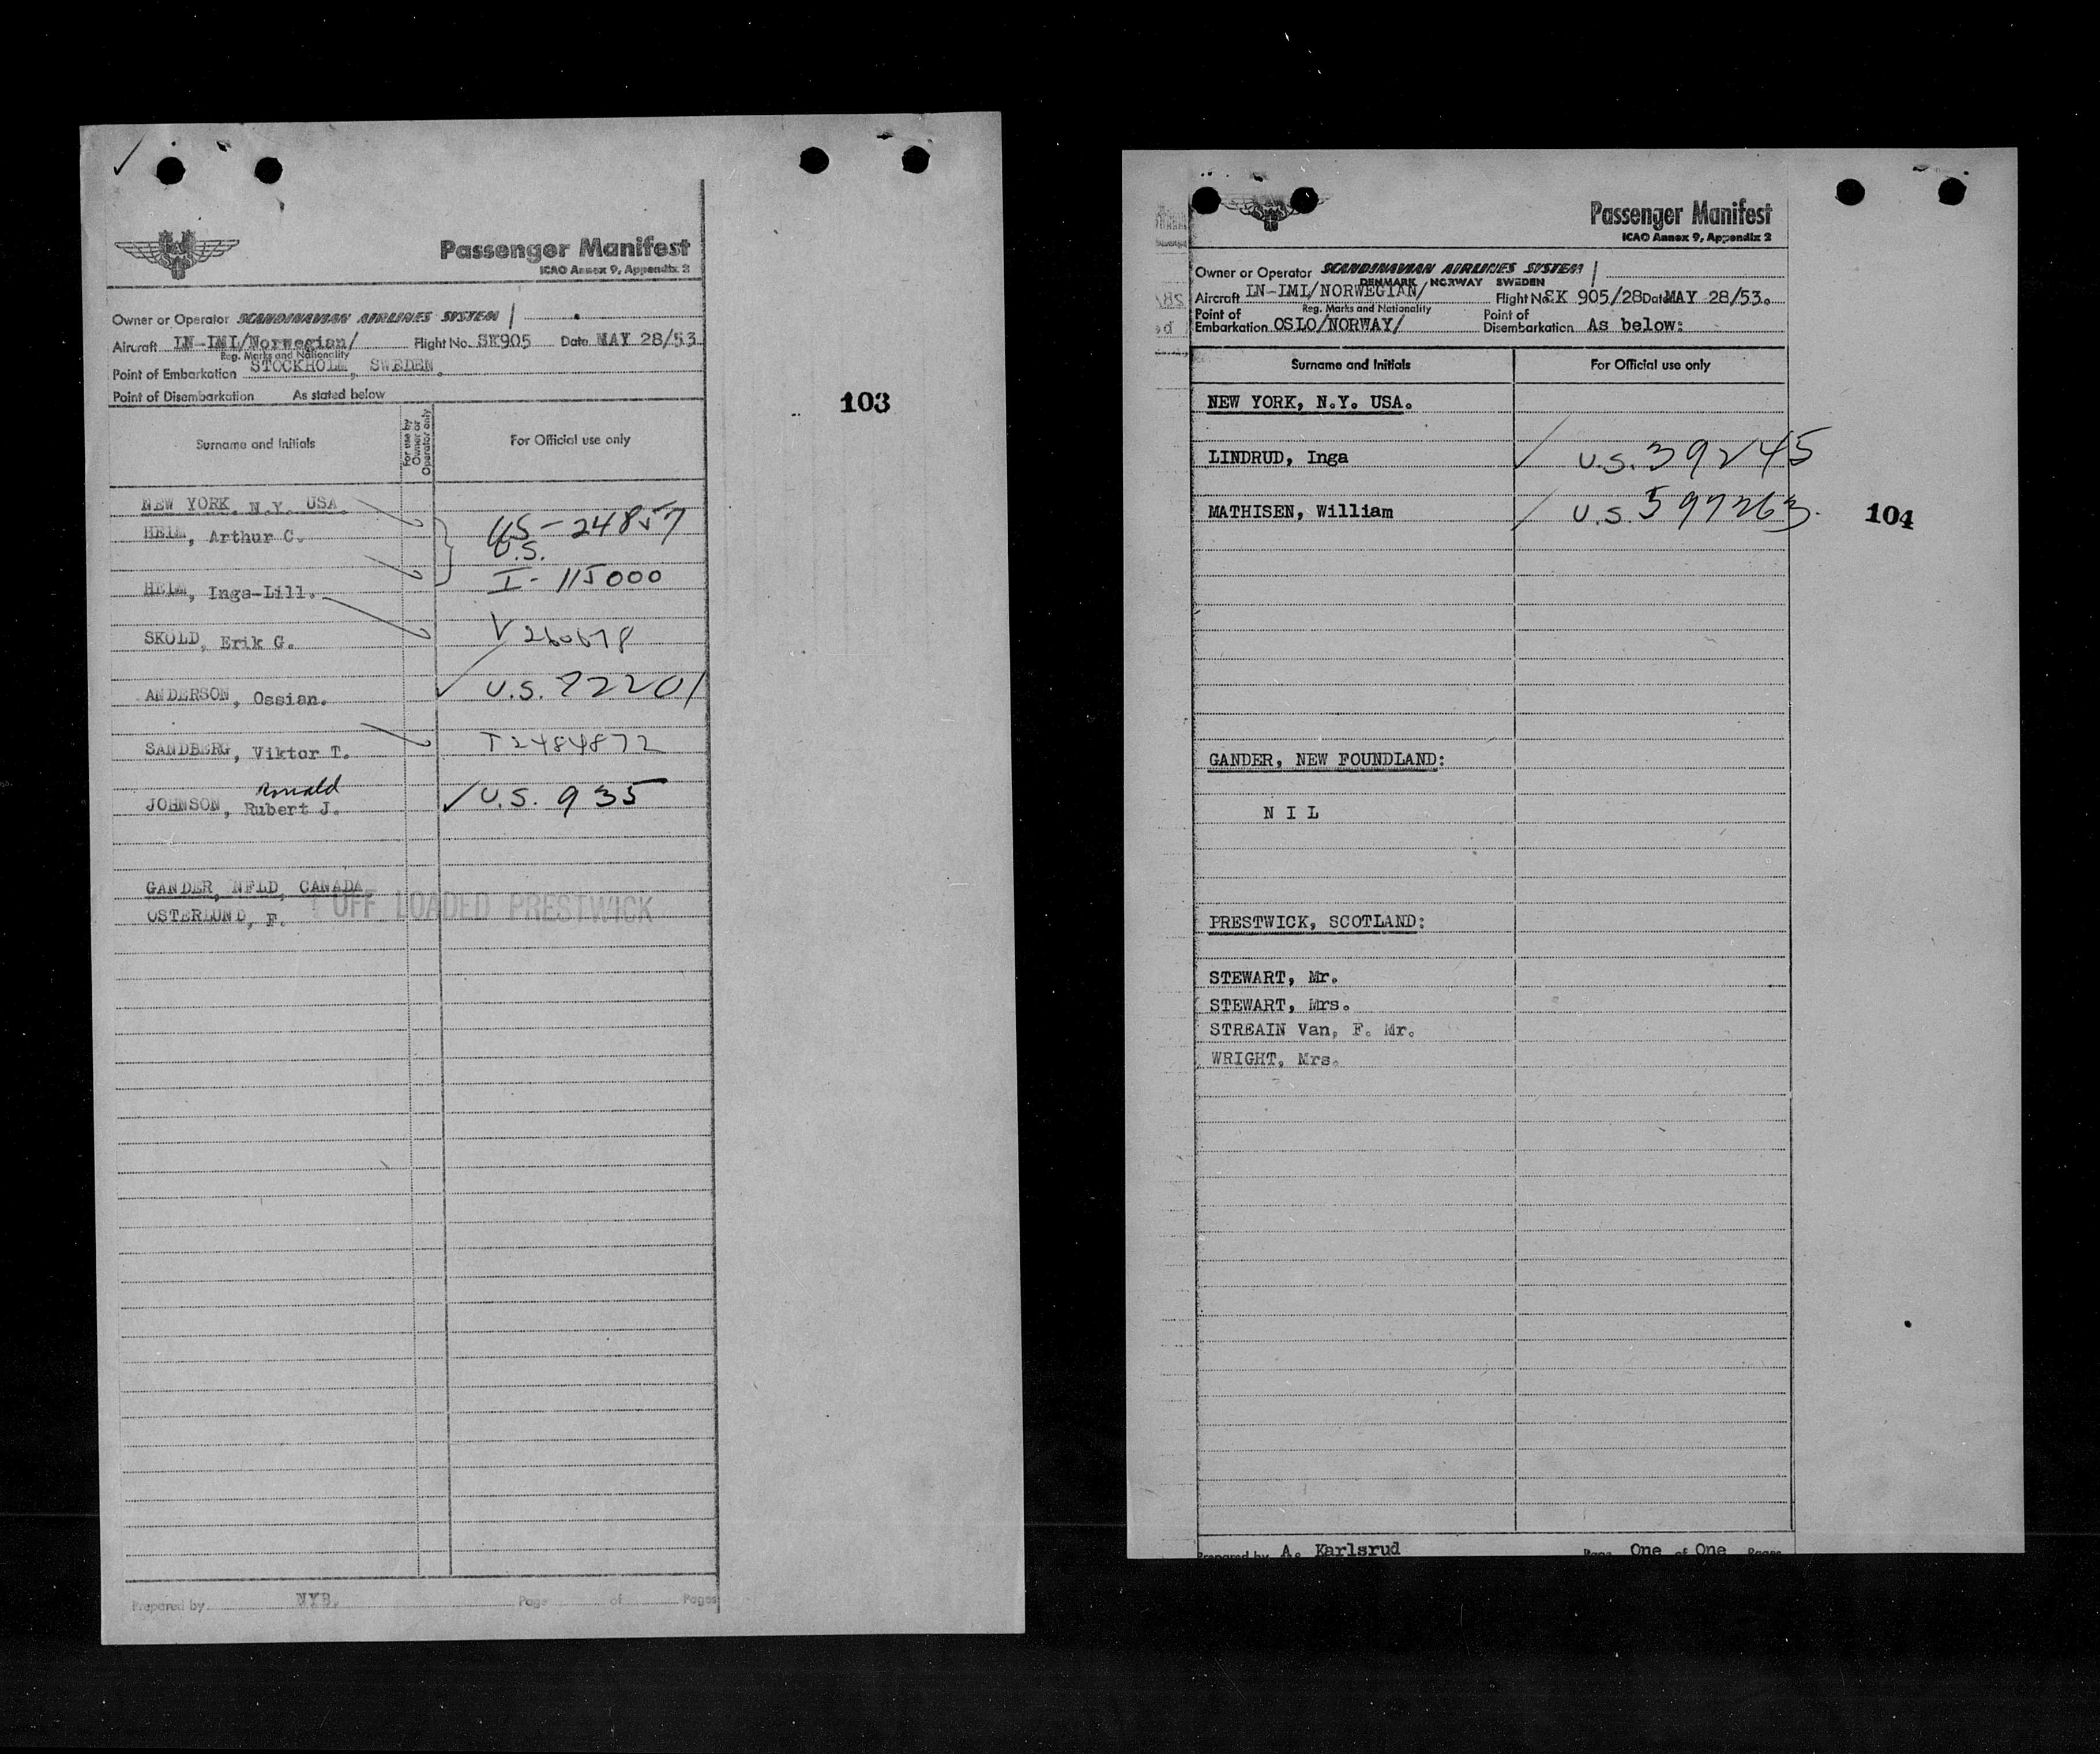 Passenger Manifest
ICAO Annex 9, Appendix 2
Owner or Operator SCANDINAVIAN AIRLINES SYSTEM
Aircraft LN-LMI/Norwegian/ Flight No. SK905 Date MAY 28/53
Reg. Marks and Nationality
Point of Embarkation STOCKHOLM, SWEDEN.
Point of Disembarkation As stated below
103
Surname and Initials For use by Owner or Operator only For Official use only
NEW YORK, N.Y. USA.
HEIM, Arthur C. US-24857
U.S.
HEIM, Inga-Lill. I-115000
SKOLD, Erik G.
ANDERSON, Ossian. U.S. 72201
SANDBERG, Viktor T. T2484872
Ronald
JOHNSON, Rubert J. U.S. 935
GANDER, NFLD, CANADA
OSTERLUND, F. OFF LOADED PRESTWICK
Prepared by NYB. Page of Pages
Passenger Manifest
ICAO Annex 9, Appendix 2
Owner or Operator SCANDINAVIAN AIRLINES SYSTEM
DENMARK NORWAY SWEDEN
Aircraft LN-LMI/NORWEGIAN/ Flight No. SK 905/28 Date MAY 28/53.
Reg. Marks and Nationality
Point of Embarkation OSLO/NORWAY/ Point of Disembarkation As below:
Surname and Initials For Official use only
NEW YORK, N.Y. USA.
LINDRUD, Inga U.S. 39245
MATHISEN, William U.S. 597263
104
GANDER, NEW FOUNDLAND:
N I L
PRESTWICK, SCOTLAND:
STEWART, Mr.
STEWART, Mrs.
STREAIN Van, F. Mr.
WRIGHT, Mrs.
Prepared by A. Karlsrud Page One of One Pages